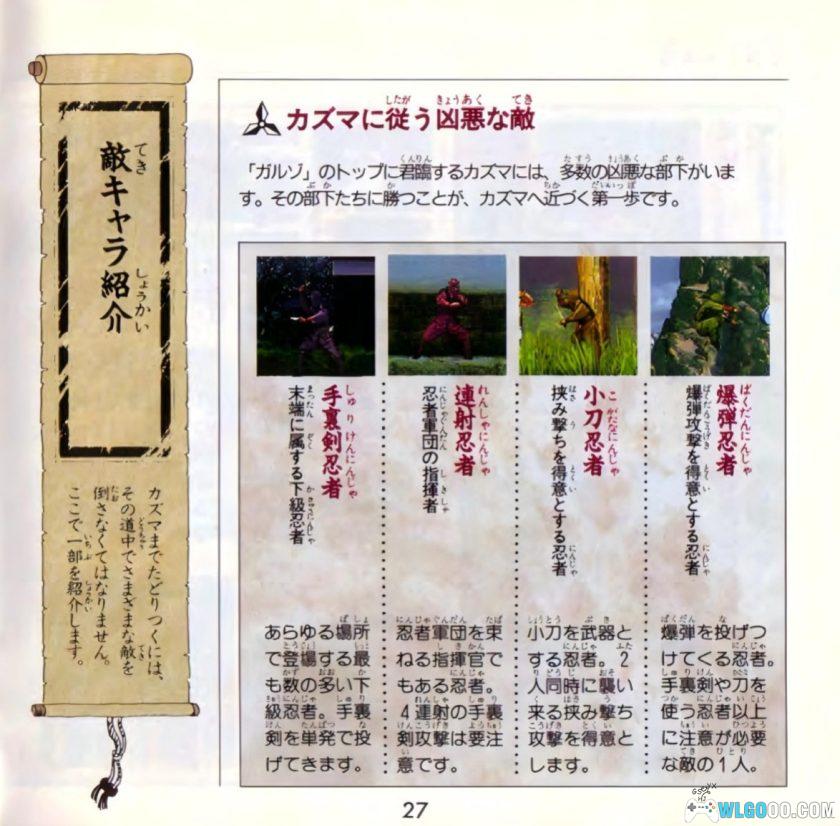 敵キャラ紹介
てき
しょうかい
カズマまでたどりつくには、
その道中でさまざまな敵を
倒さなくてはなりません。
ここで一部を紹介します。
カズマに従う凶悪な敵
したが きょうあく てき
「ガルゾ」のトップに君臨するカズマには、多数の凶悪な部下がいま
す。その部下たちに勝つことが、カズマへ近づく第一歩です。
手裏剣忍者
しゅりけんにんじゃ
末端に属する下級忍者
あらゆる場所
で登場する最
も数の多い下
級忍者。手裏
剣を単発で投
げてきます。
連射忍者
れんしゃにんじゃ
忍者軍団の指揮者
忍者軍団を束
ねる指揮官で
もある忍者。
4連射の手裏
剣攻撃は要注
意です。
小刀忍者
こがたなにんじゃ
挟み撃ちを得意とする忍者
小刀を武器と
する忍者。2
人同時に襲い
来る挟み撃ち
攻撃を得意と
します。
爆弾忍者
ばくだんにんじゃ
爆弾攻撃を得意とする忍者
爆弾を投げつ
けてくる忍者。
手裏剣や刀を
使う忍者以上
に注意が必要
な敵の1人。
27
WLGOOO.COM